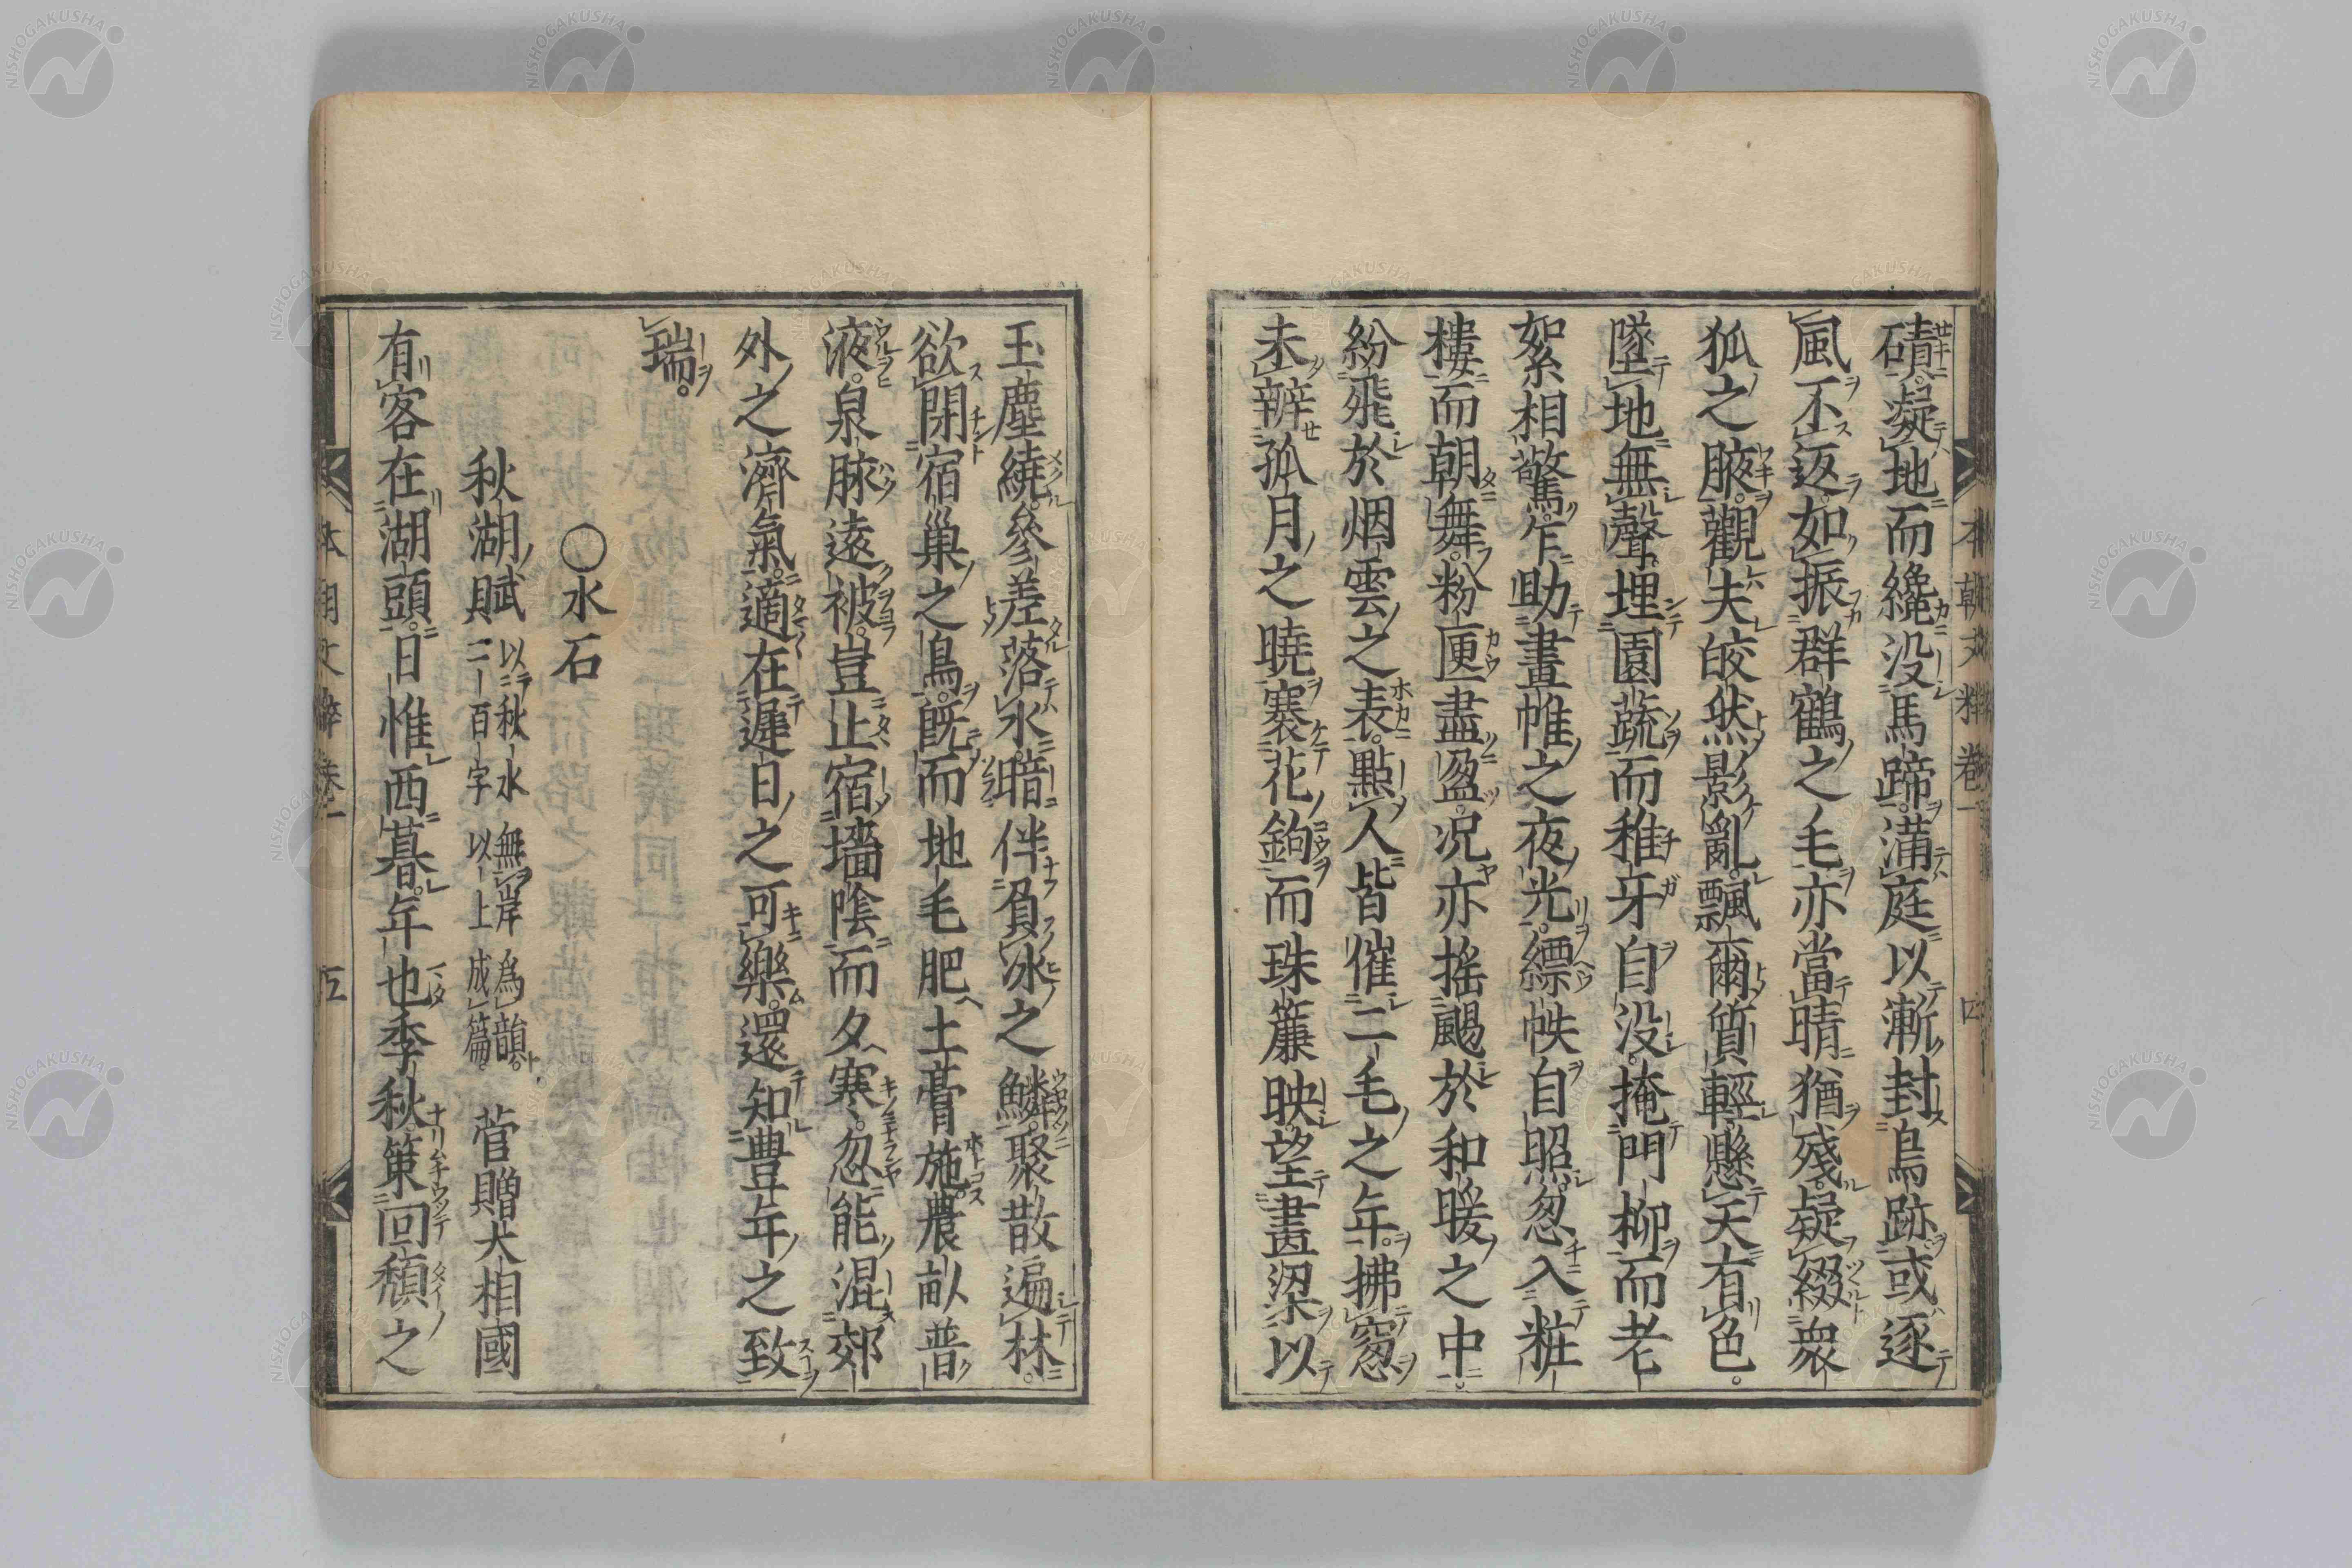 磧。凝地而纔没馬蹄。満庭以漸封鳥跡。或逐
風不返。如振群鶴之毛。亦當晴猶殘。疑綴衆
狐之腋。觀夫皎然影亂。飄爾質輕。懸天有色。
墜地無聲。埋園蔬而稚牙自没。掩門柳而老
絮相驚。乍助晝帷之夜光。縹帙自照。忽入粧
樓而朝舞。粉匣盡盈。况亦搖颺於和暖之中。
紛飛於烟雲之表。點人皆催二毛之年。拂窓
未辨孤月之曉。褰花鉤而珠簾映。望畫梁以
玉塵繞。參差落水。暗伴負冰之鱗。聚散遍林。
欲閉宿巢之鳥。既而地毛肥土膏施。農畝普
液。泉脉遠被。豈止宿墻陰而夕寒。忽能混郊
外之濟氣。適在遲日之可樂。還知豊年之致
瑞。
○水石
秋湖賦 以秋水無岸爲韻。二百字以上成篇。 菅贈大相國
有客在湖頭。日惟西暮。年也季秋。策回頽之
本朝文粋卷一 四
本朝文粹卷一 五
NISHOGAKUSHA